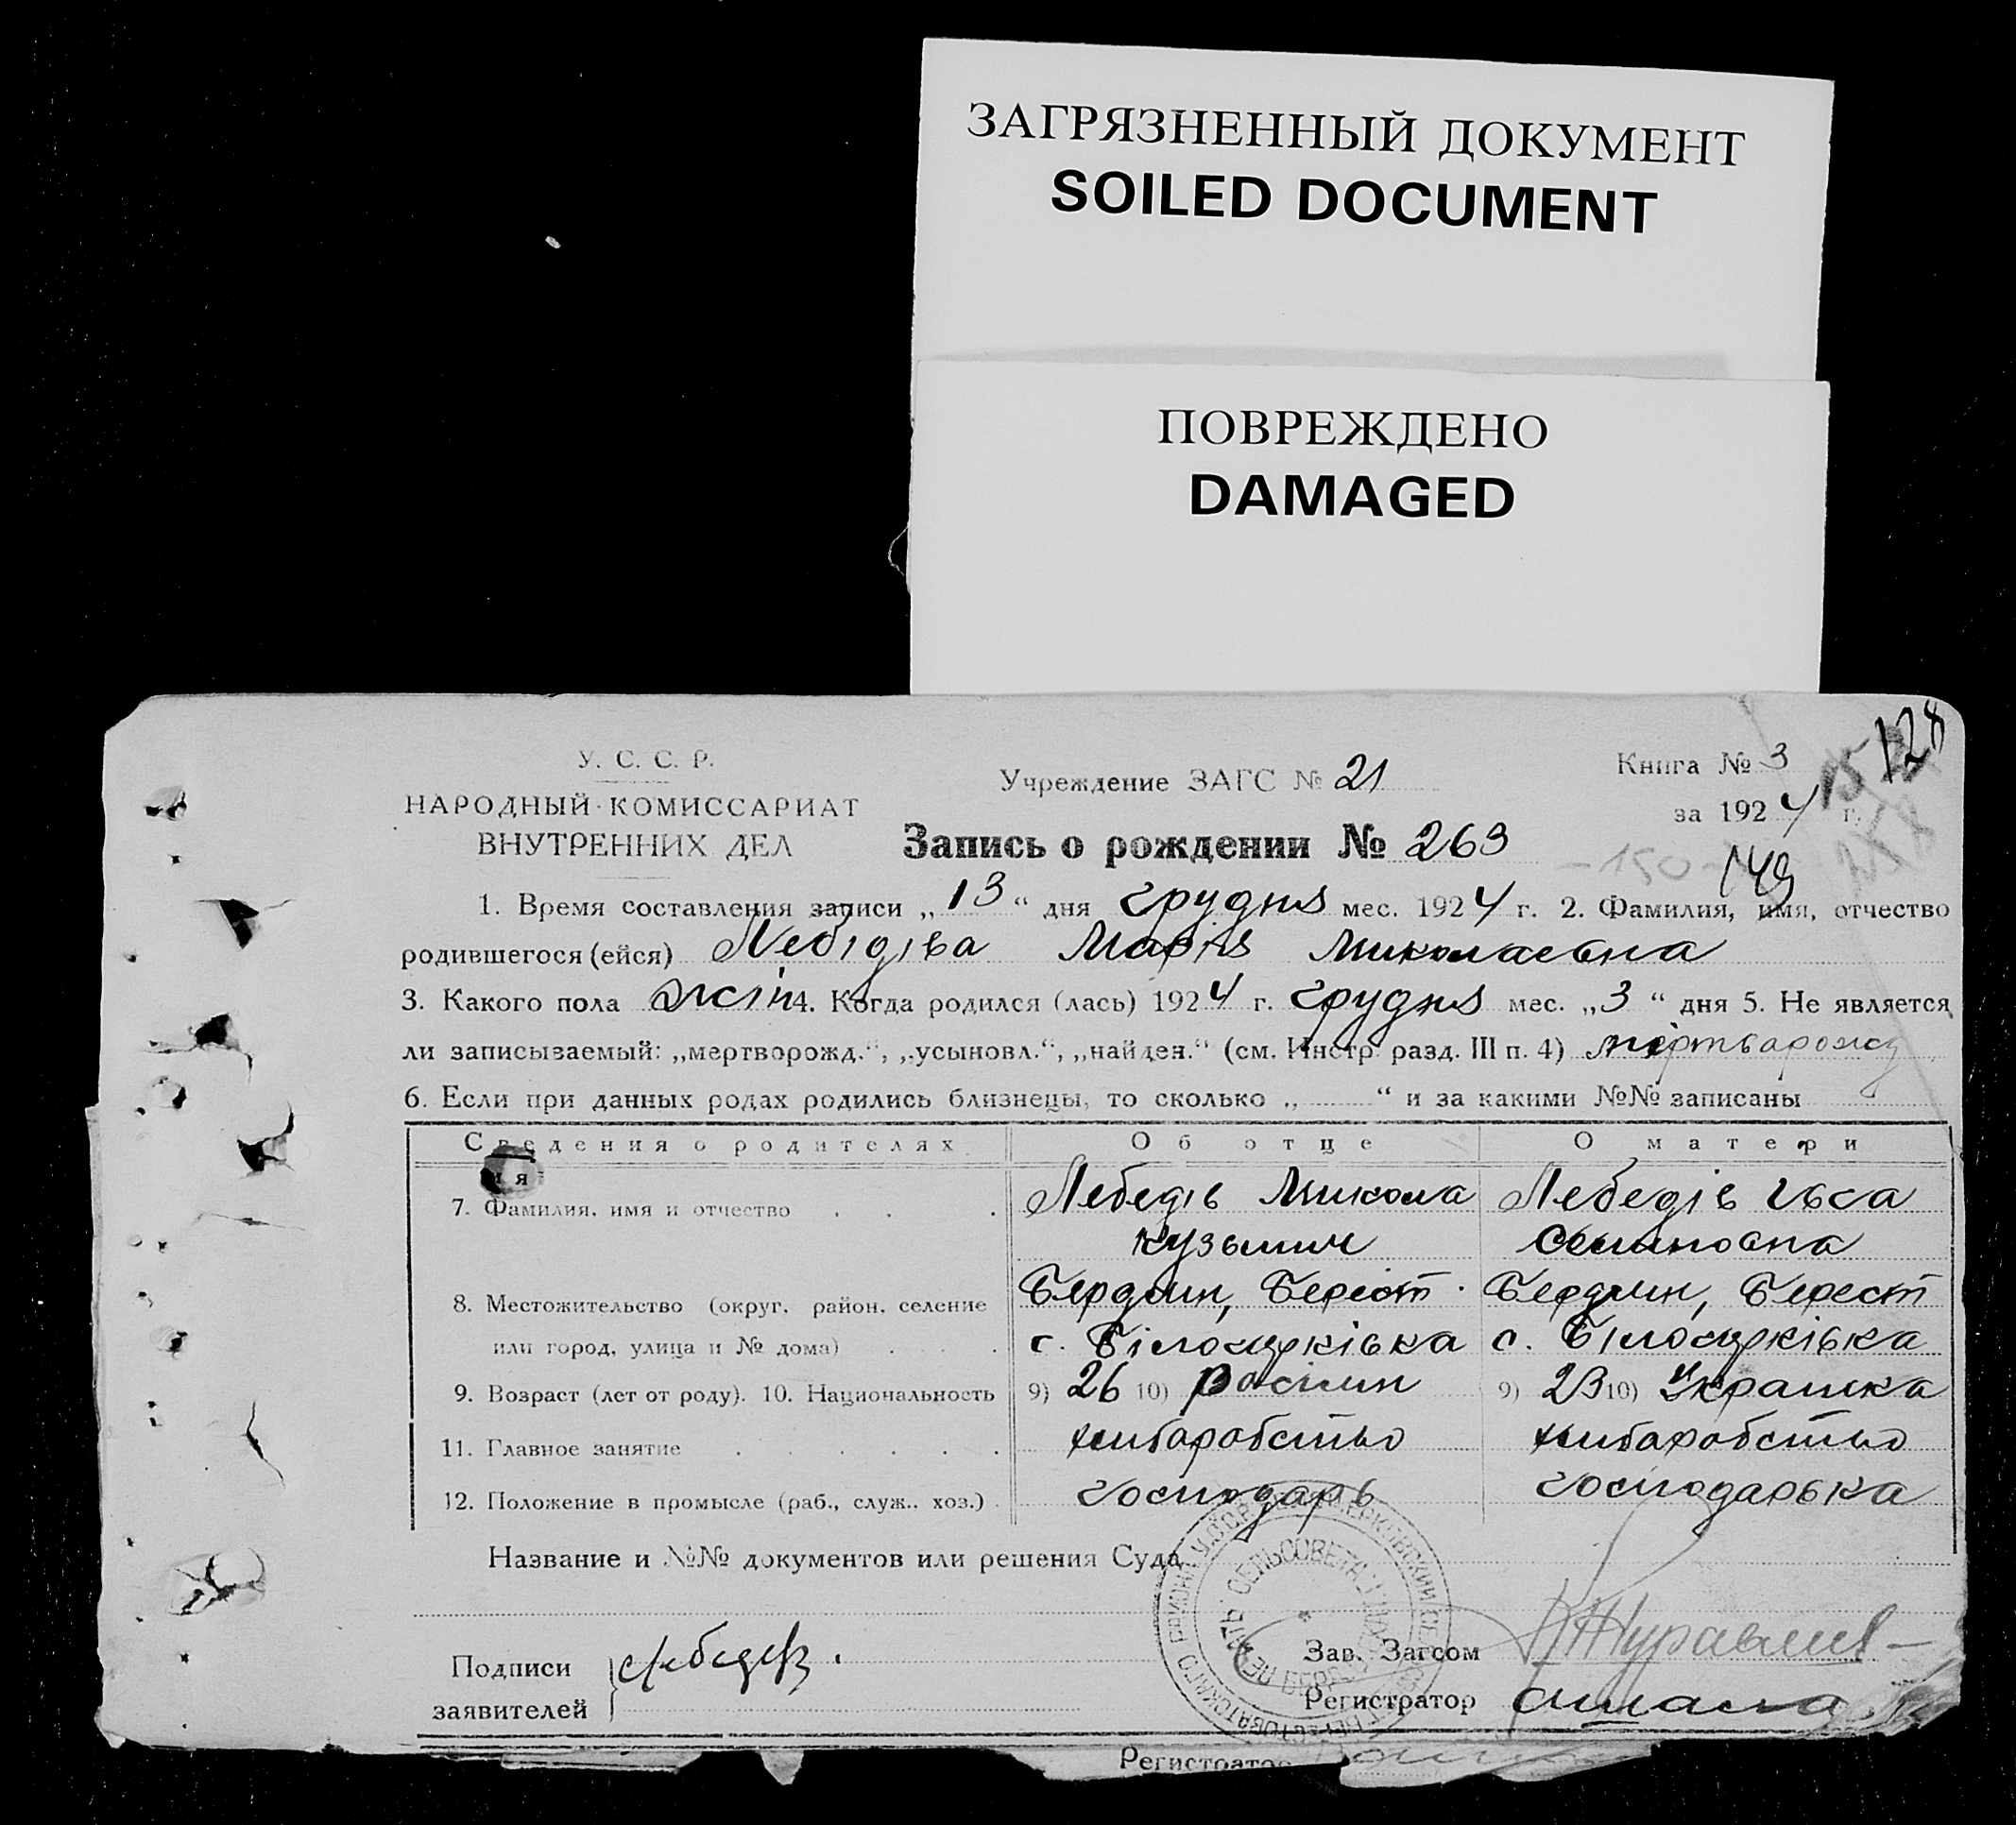 ЗАГРЯЗНЕННЫЙ ДОКУМЕНТ
SOILED DOCUMENT
ПОВРЕЖДЕНО
DAMAGED
128
У. С. С. Р.
НАРОДНЫЙ КОМИССАРИАТ
ВНУТРЕННИХ ДЕЛ
Учреждение ЗАГС № 21
Книга № 3
за 1924 г.
Запись о рождении № 263
-150-
149
1. Время составления записи „13“ дня грудня мес. 1924 г. 2. Фамилия, имя, отчество
родившегося (ейся) Лебідіва Марія Миколаевна
3. Какого пола жін 4. Когда родился (лась) 1924 г. грудня мес. „3“ дня 5. Не является
ли записываемый: „мертворожд.“, „усыновл.“, „найден.“ (см. Инстр. разд. III п. 4) мертворожд
6. Если при данных родах родились близнецы, то сколько „ “ и за какими №№ записаны
Сведения о родителях Об отце О матери
7. Фамилия, имя и отчество Лебедів Микола Лебедів
Кузьмич Семиновна
8. Местожительство (округ, район, селение Бердян, Берест. Бердян, Берест
или город, улица и № дома) с. Білоцерківка с. Білоцерківка
9. Возраст (лет от роду). 10. Национальность 9) 26 10) Росіянин 9) 23 10) Українка
11. Главное занятие хліборобство хліборобство
12. Положение в промысле (раб., служ., хоз.) господарь господарька
Название и №№ документов или решения Суда
Подписи
заявителей
Лебедев.
Зав. Загсом Журавлев
Регистратор
Регистратор